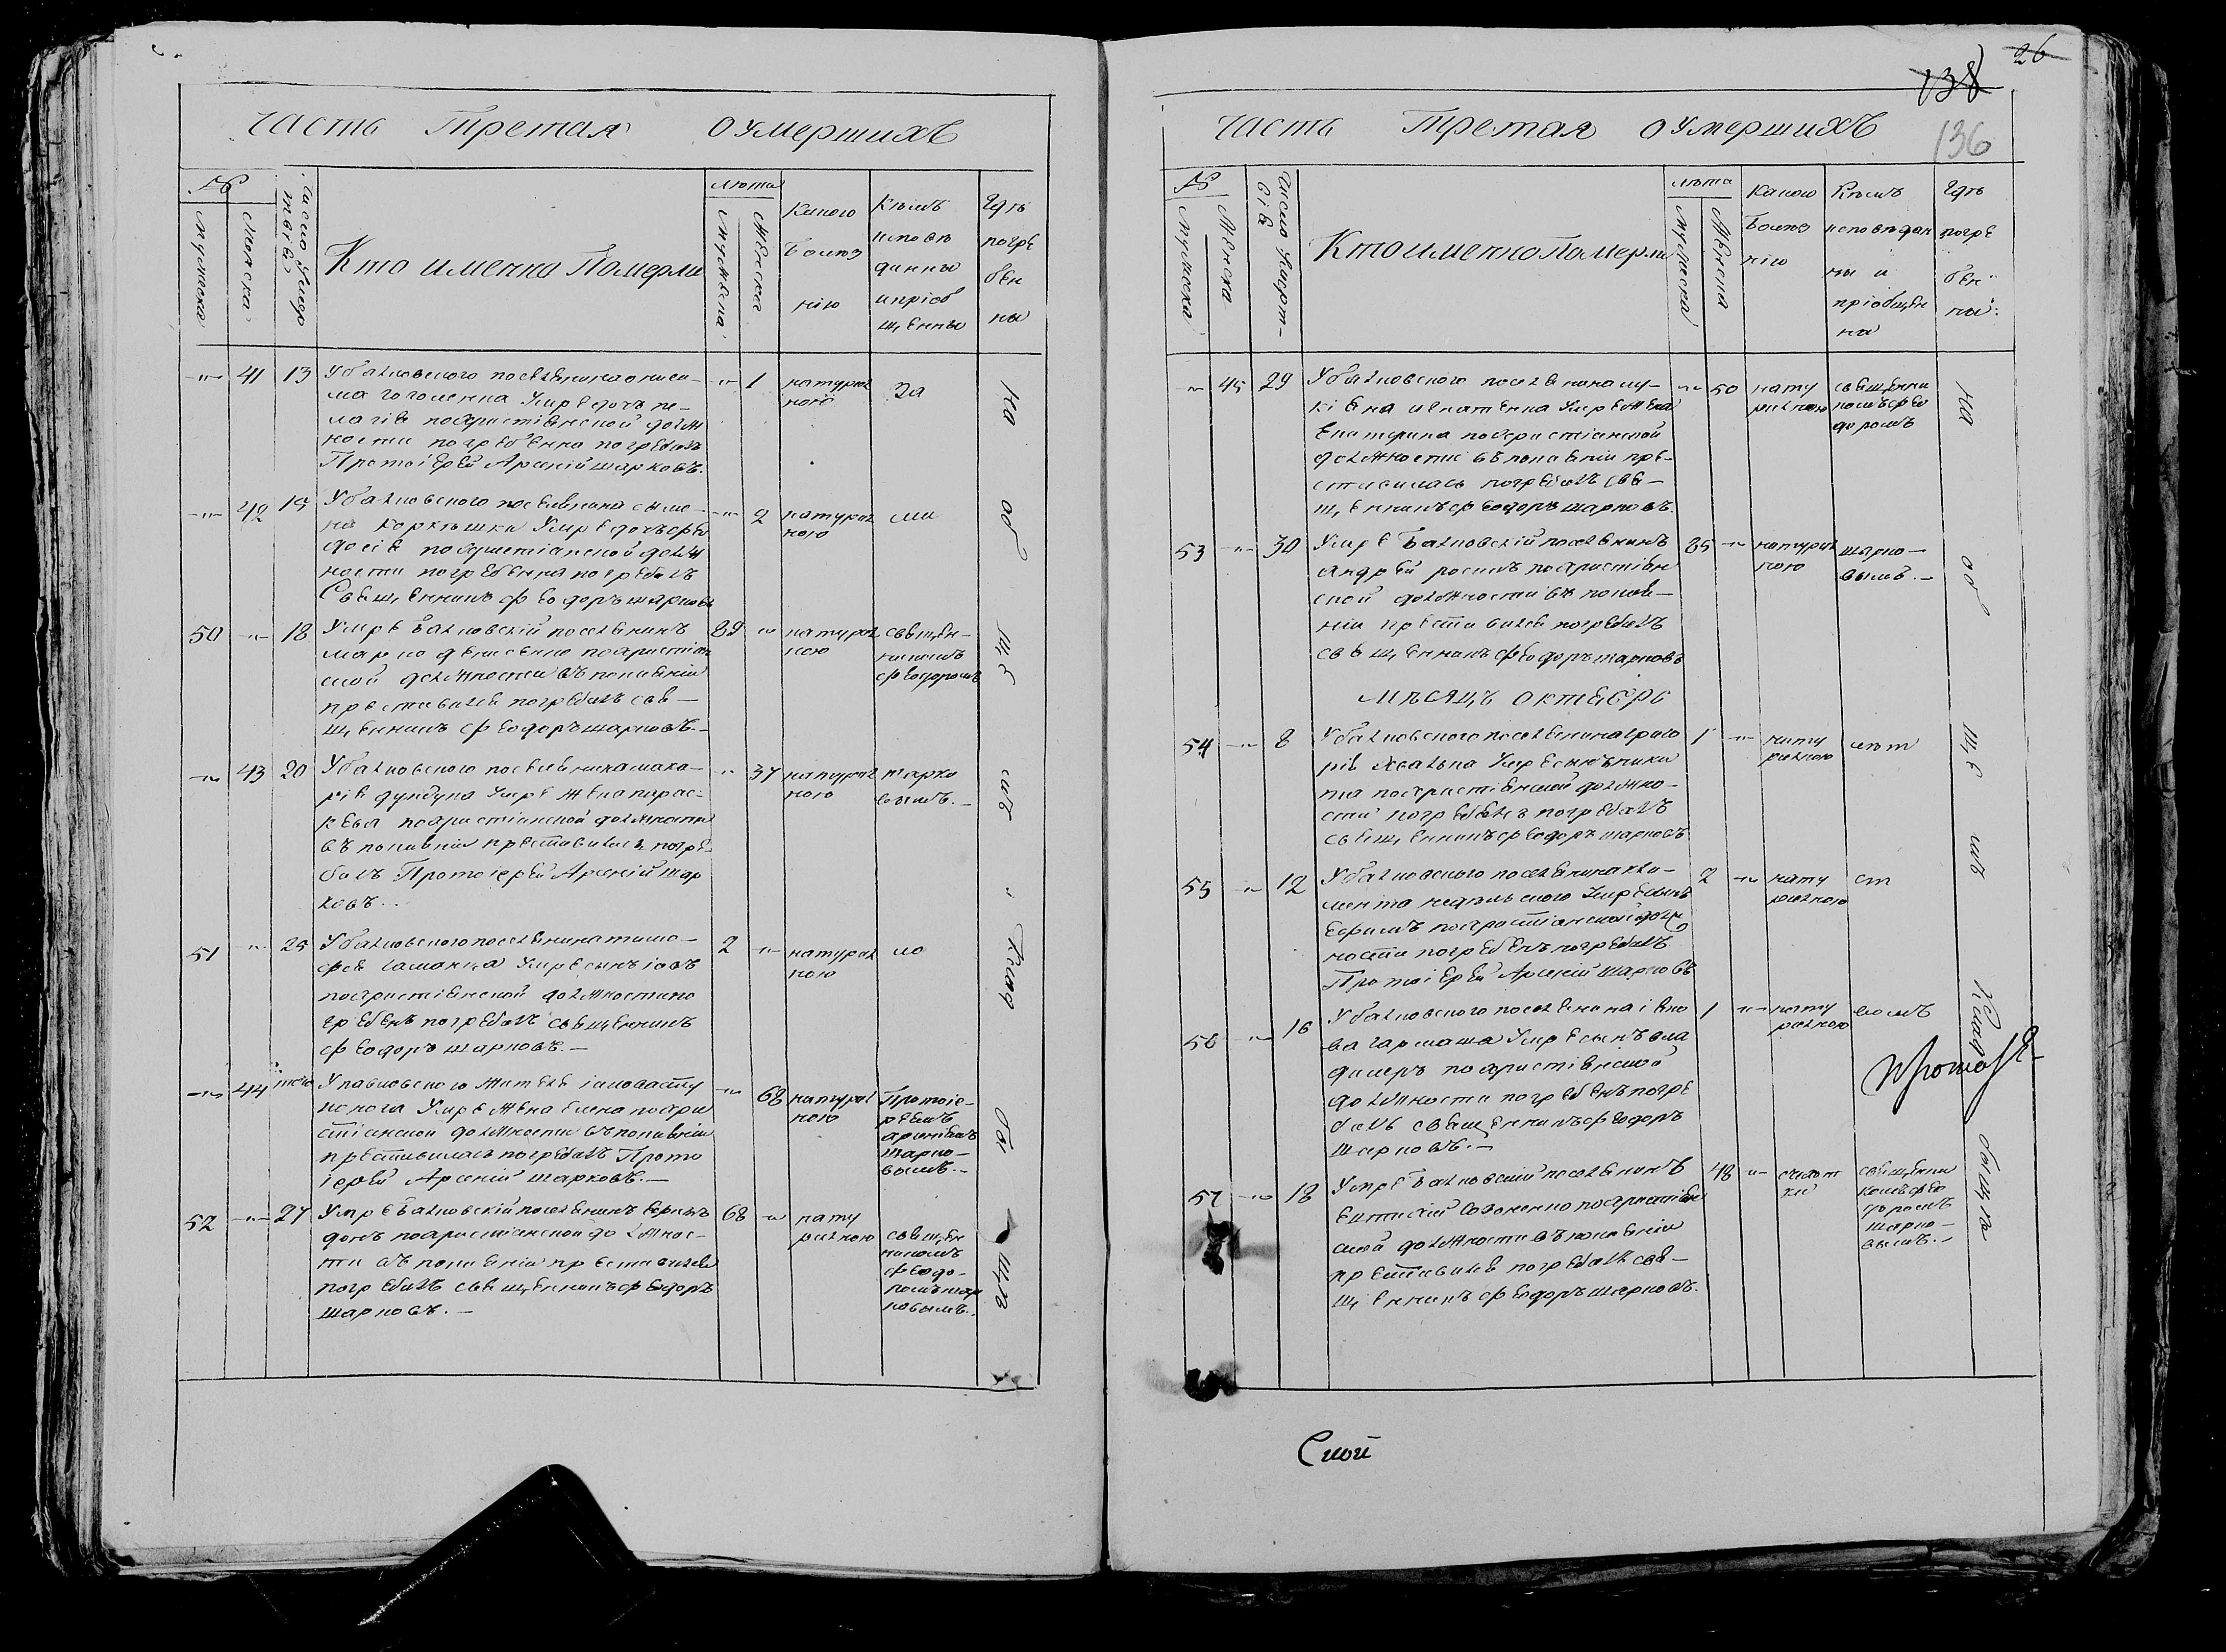 Часть Третая О умершихъ
№
мужеска
женска
Число умер
твія
Кто именно Померли
лѣта
мужеска
женска
Какою
Болѣз
нію
Кѣмъ
исповѣ
данны
и пріоб
щенны
Гдѣ
погре
бен
ны
41 13 У балковского поселенина
Умре дочь пе-
лагія по христіянской долж
ности погребенна погребалъ
Протоіерей Арсеній шарковъ.
1 натурал
ною
за
на
42 15 У балковского поселенина симо-
на коркишки Умре дочь фео
досія по христіанской долж
ности погребенна погребалъ
Священникъ феодоръ шарковъ
2 натурал
ною
ми
об
50 18 Умре Балковскій поселенинъ
марко денисенко по христіан
ской должности въ покаяніи
преставился погребалъ свя-
щенникъ феодоръ шарковъ.-
89 натурал
ною
священ-
никомъ
феодоромъ
ще
43 20 У балковского поселенина мака-
рія дундука Умре жена парас-
кева по христіанской должности
въ покаяніи преставилась погре-
балъ Протоіерей Арсеній шар
ковъ..
37 натурал
ною
шарко
вымъ.-
мъ
51 25 У балковского поселенина тимо-
фея Умре сынъ іовъ
по христіянской должности по
гребенъ погребалъ священникъ
феодоръ шарковъ.-
2 натурал
ною
ло
клад
44 того У павловского жителя
Умре жена елена по хри
стіанской должности въ покаяніи
преставилась погребалъ Прото
іерей Арсеній шарковъ.-
68 натурал
ною
Протоіе-
реемъ
арсеніемъ
шарко-
вымъ.-
би
52 27 Умре Балковскій поселенинъ
по христіанской должнос-
ти въ покаяніи преставился
погребалъ священникъ феодоръ
шарковъ.-
68 нату
ралною
священ
никомъ
феодо-
ромъ шар
ковымъ.
щѣ
26
138
136
Часть Третая О умершихъ
№
мужеска
женска
Число умерт-
вія
Кто именно Померли
лѣта
мужеска
женска
Какою
Болѣз
нію
Кѣмъ
исповѣдан
ны и
пріобщен
на
Гдѣ
погре
бен
ны.
45 29 У балковского поселенина лу-
кіяна игнатенка Умре жена
Екатерина по христіанской
должности въ покаяніи пре-
ставилась погребалъ свя-
щенникъ феодоръ шарковъ.
50 нату
ралною
священни
комъ фео
доромъ
на
53 30 Умре Балковскій поселенинъ
Андрей по христіян
ской должности въ покая-
ніи преставился погребалъ
священникъ феодоръ шарковъ
85 натурал
ною
шарко-
вымъ.-
об
мѣсяцъ октябрь
54 8 У балковского поселенина григо
рія Умре сынъ ники
та по христіянской должно-
сти погребенъ погребалъ
священникъ феодоръ шарковъ
1 нату
ралною
лѣт
ще
55 12 У балковского поселенина кли-
мента недѣлского Умре сынъ
Ефимъ по христіанской долж
ности погребенъ погребалъ
Протоіерей Арсеній шарковъ
2 нату
ралною
ст
мъ
56 16 У балковского поселенина іяко
ва гармаша Умре сынъ вла
димеръ по христіянской
должности погребенъ погре
балъ священникъ феодоръ
шарковъ.-
1 нату
ралною
вомъ
клад
57 18 Умре Балковскій поселенинъ
Евтихій по христіян
ской должности въ покаяніи
преставился погребалъ свя-
щенникъ феодоръ шарковъ.
48
священни
комъ фео
доромъ
шарко-
вымъ.-
бищѣ
Протоіе-
Ской